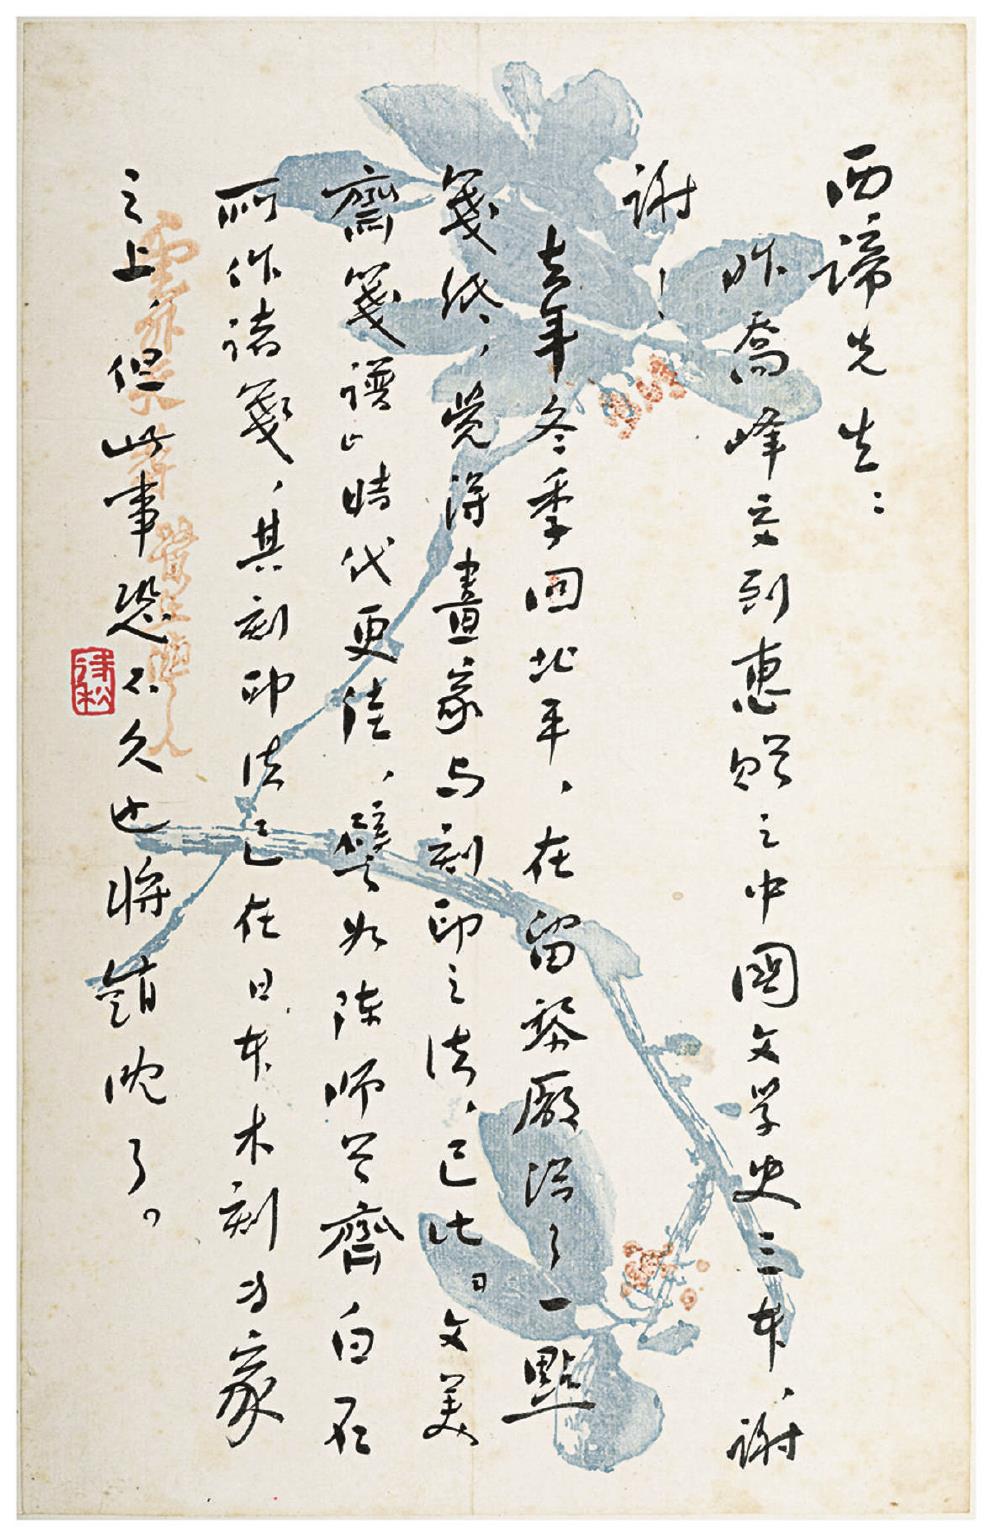 西諦先生：
昨喬峰交到惠贈之中國文学史三本，謝
謝！
去年冬季回北平，在留黎廠得了一點
箋紙，覺得畫家与刻印之法，已比『文美
齋箋譜』時代更佳，譬如陳師曾齊白石
所作諸箋，其刻印法已在日本木刻專家
之上，但此事恐不久也將銷沈了。